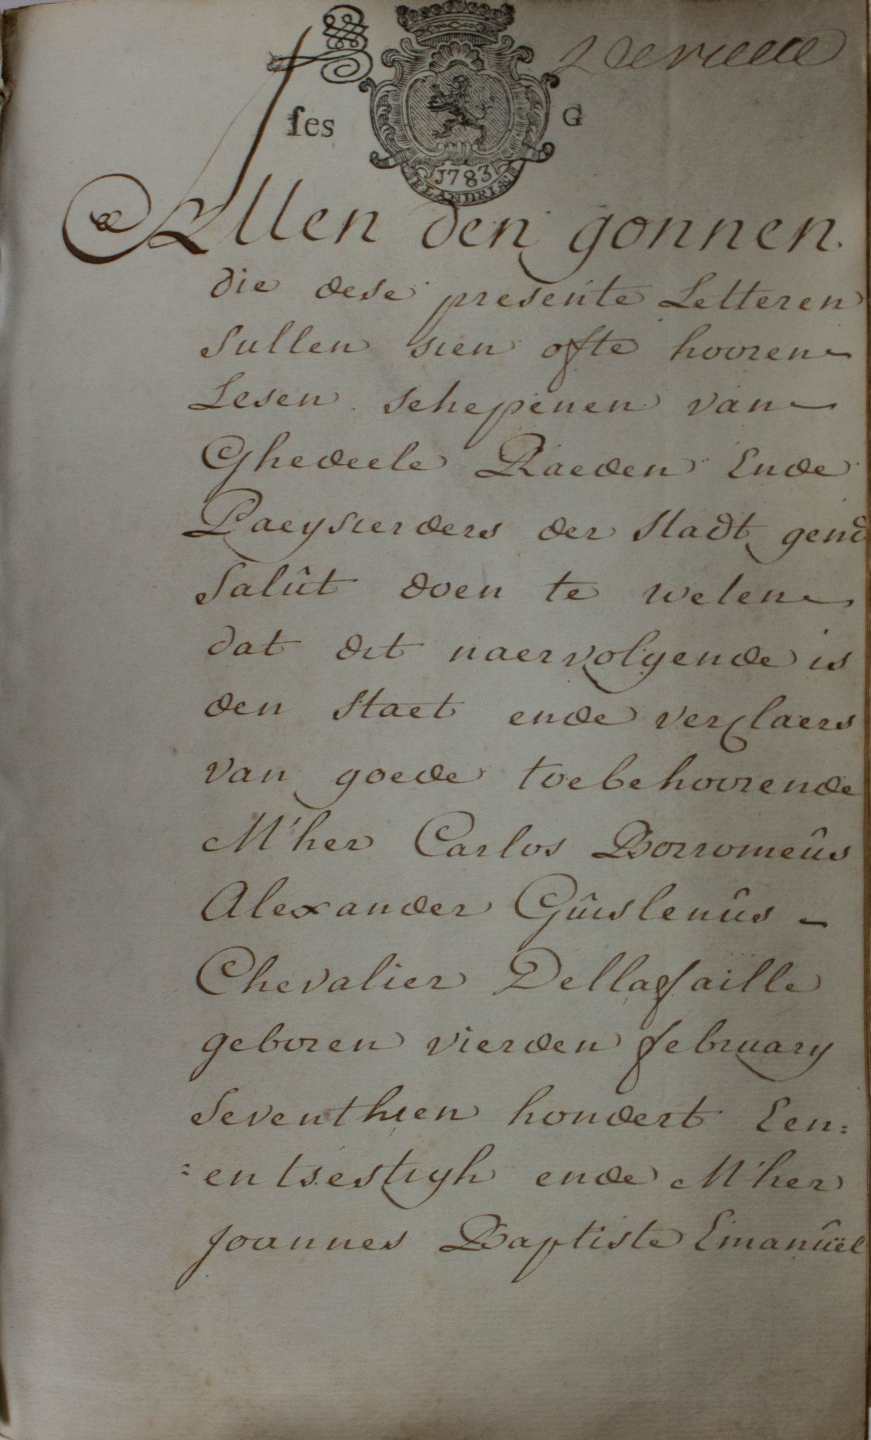 ses G
1783
FLANDRIÆ
Allen den gonnen
die dese presente Letteren
sullen sien ofte hooren
Lesen schepenen van
Ghedeele Raeden Ende
Paeysierders der stadt gend
salût doen te weten
dat dit naervolgende is
den staet ende verclaers
van goede toebehoorende
M'her Carlos Borromeûs
Alexander Gûislenûs
Chevalier Dellafaille
geboren vierden february
seventhien hondert Een=
=entsestigh ende M'her
Joannes Baptiste Emanûel